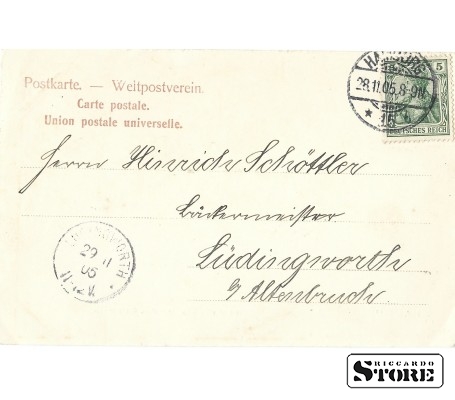 Postkarte. — Weltpostverein.
Carte postale.
Union postale universelle.
HAMBURG
28.11.05.8-9N.
* 15
5
DEUTSCHES REICH
Herrn Hinrich Schöttler
Bäckermeister
Lüdingworth
b/ Altenbruch
LÜDINGWORTH
29 11
05
RICCARDO
STORE